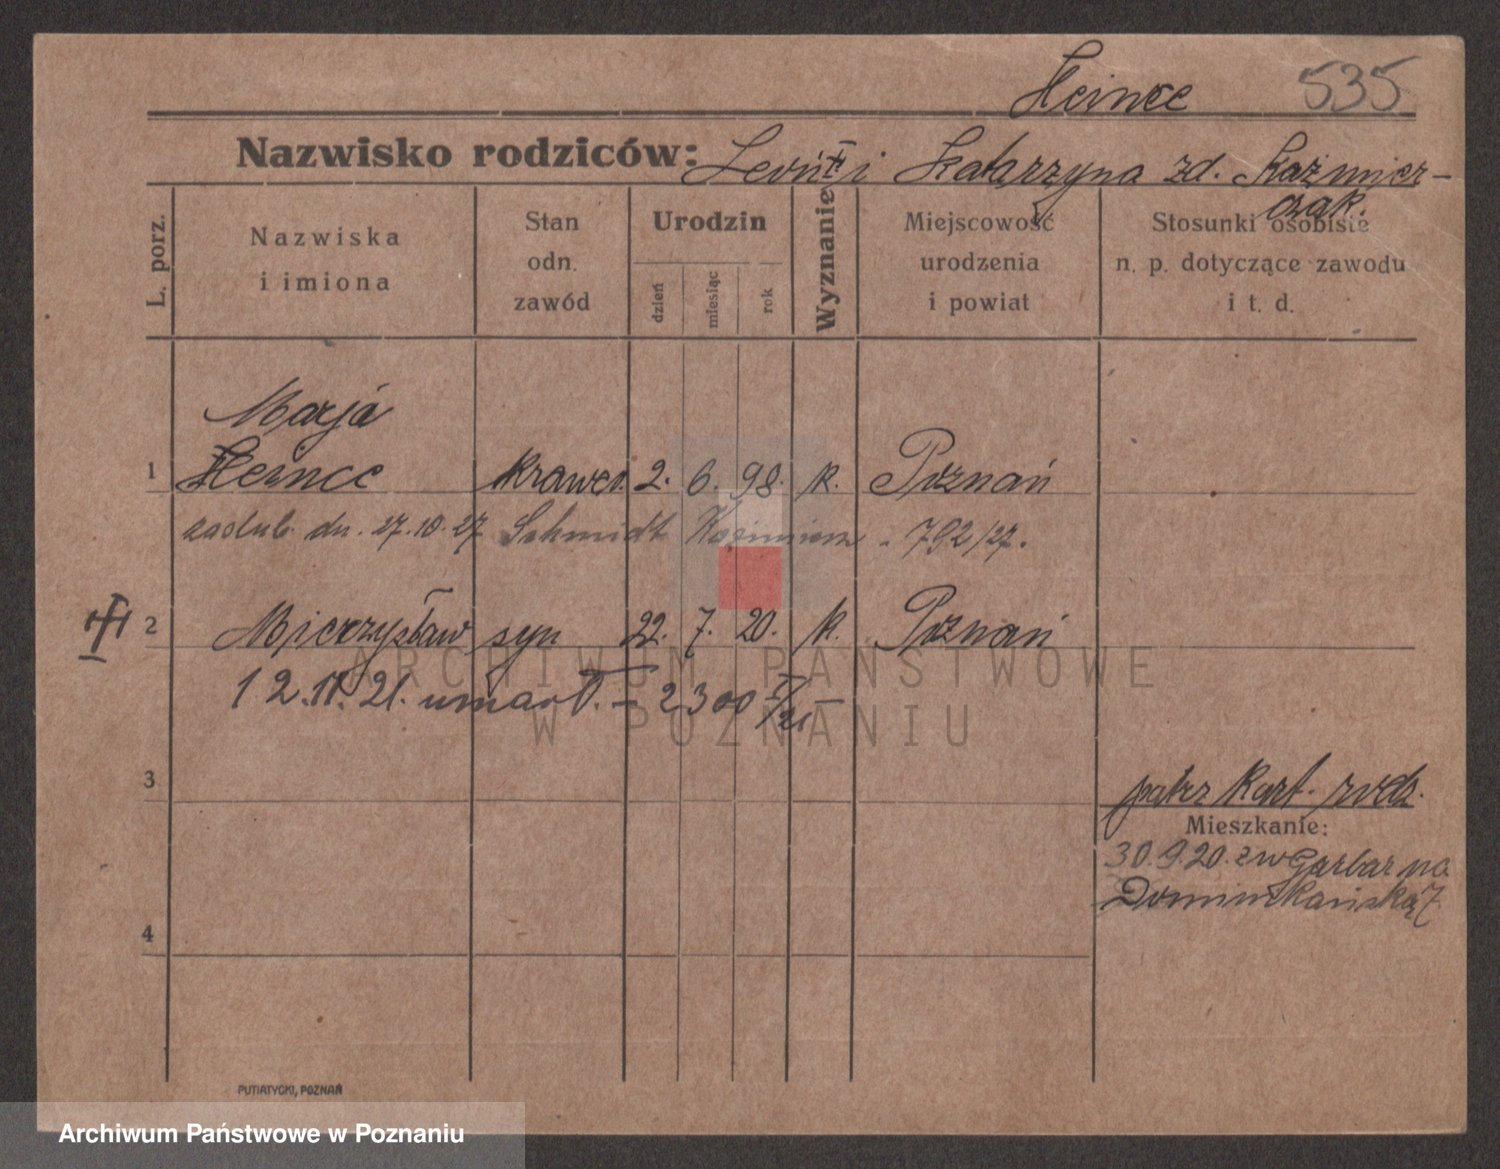 Heince 535
Nazwisko rodziców: Leon † i Katarzyna zd. Kaźmier-
czak.
L. porz.
Nazwiska
i imiona
Stan
odn.
zawód
Urodzin
dzień
miesiąc
rok
Wyznanie
Miejscowość
urodzenia
i powiat
Stosunki osobiste
n. p. dotyczące zawodu
i t. d.
Marja
1 Heince krawco. 2. 6. 98. k. Poznań
zaślub. dn. 27.10.27 Schmidt Kazimierz - 792/27.
2 Mieczysław syn 22. 7. 20. k. Poznań
12.11.21. umarł. - 2300
ARCHIWUM PAŃSTWOWE
W POZNANIU
3
patrz Kart. rodz.
Mieszkanie:
30.9.20. z w Garbar na
Dominikańską 7
4
PUTIATYCKI, POZNAŃ
Archiwum Państwowe w Poznaniu